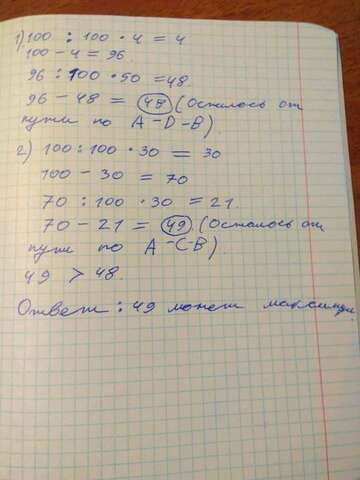 1) 100 : 100 · 4 = 4
100 - 4 = 96
96 : 100 · 50 = 48.
96 - 48 = 48 (Осталось от
пути по A-D-B)
2) 100 : 100 · 30 = 30
100 - 30 = 70
70 : 100 · 30 = 21.
70 - 21 = 49 (Осталось от
пути по A-C-B)
49 > 48.
Ответ: 49 монет максимум.